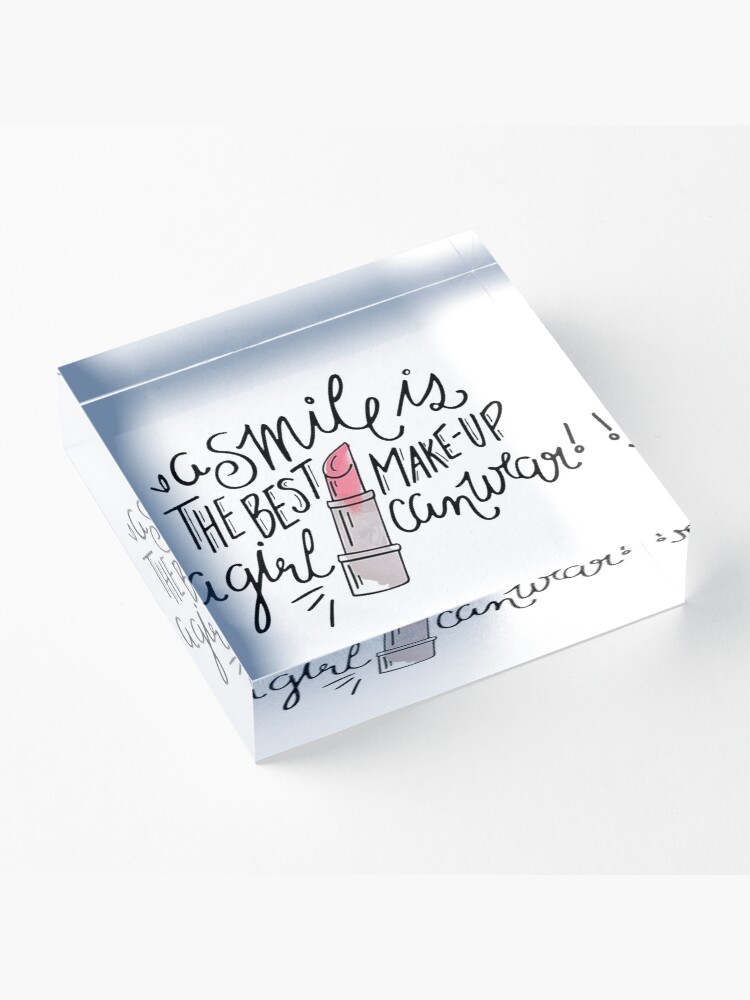 a smile is
THE BEST MAKE-UP
a girl can wear!